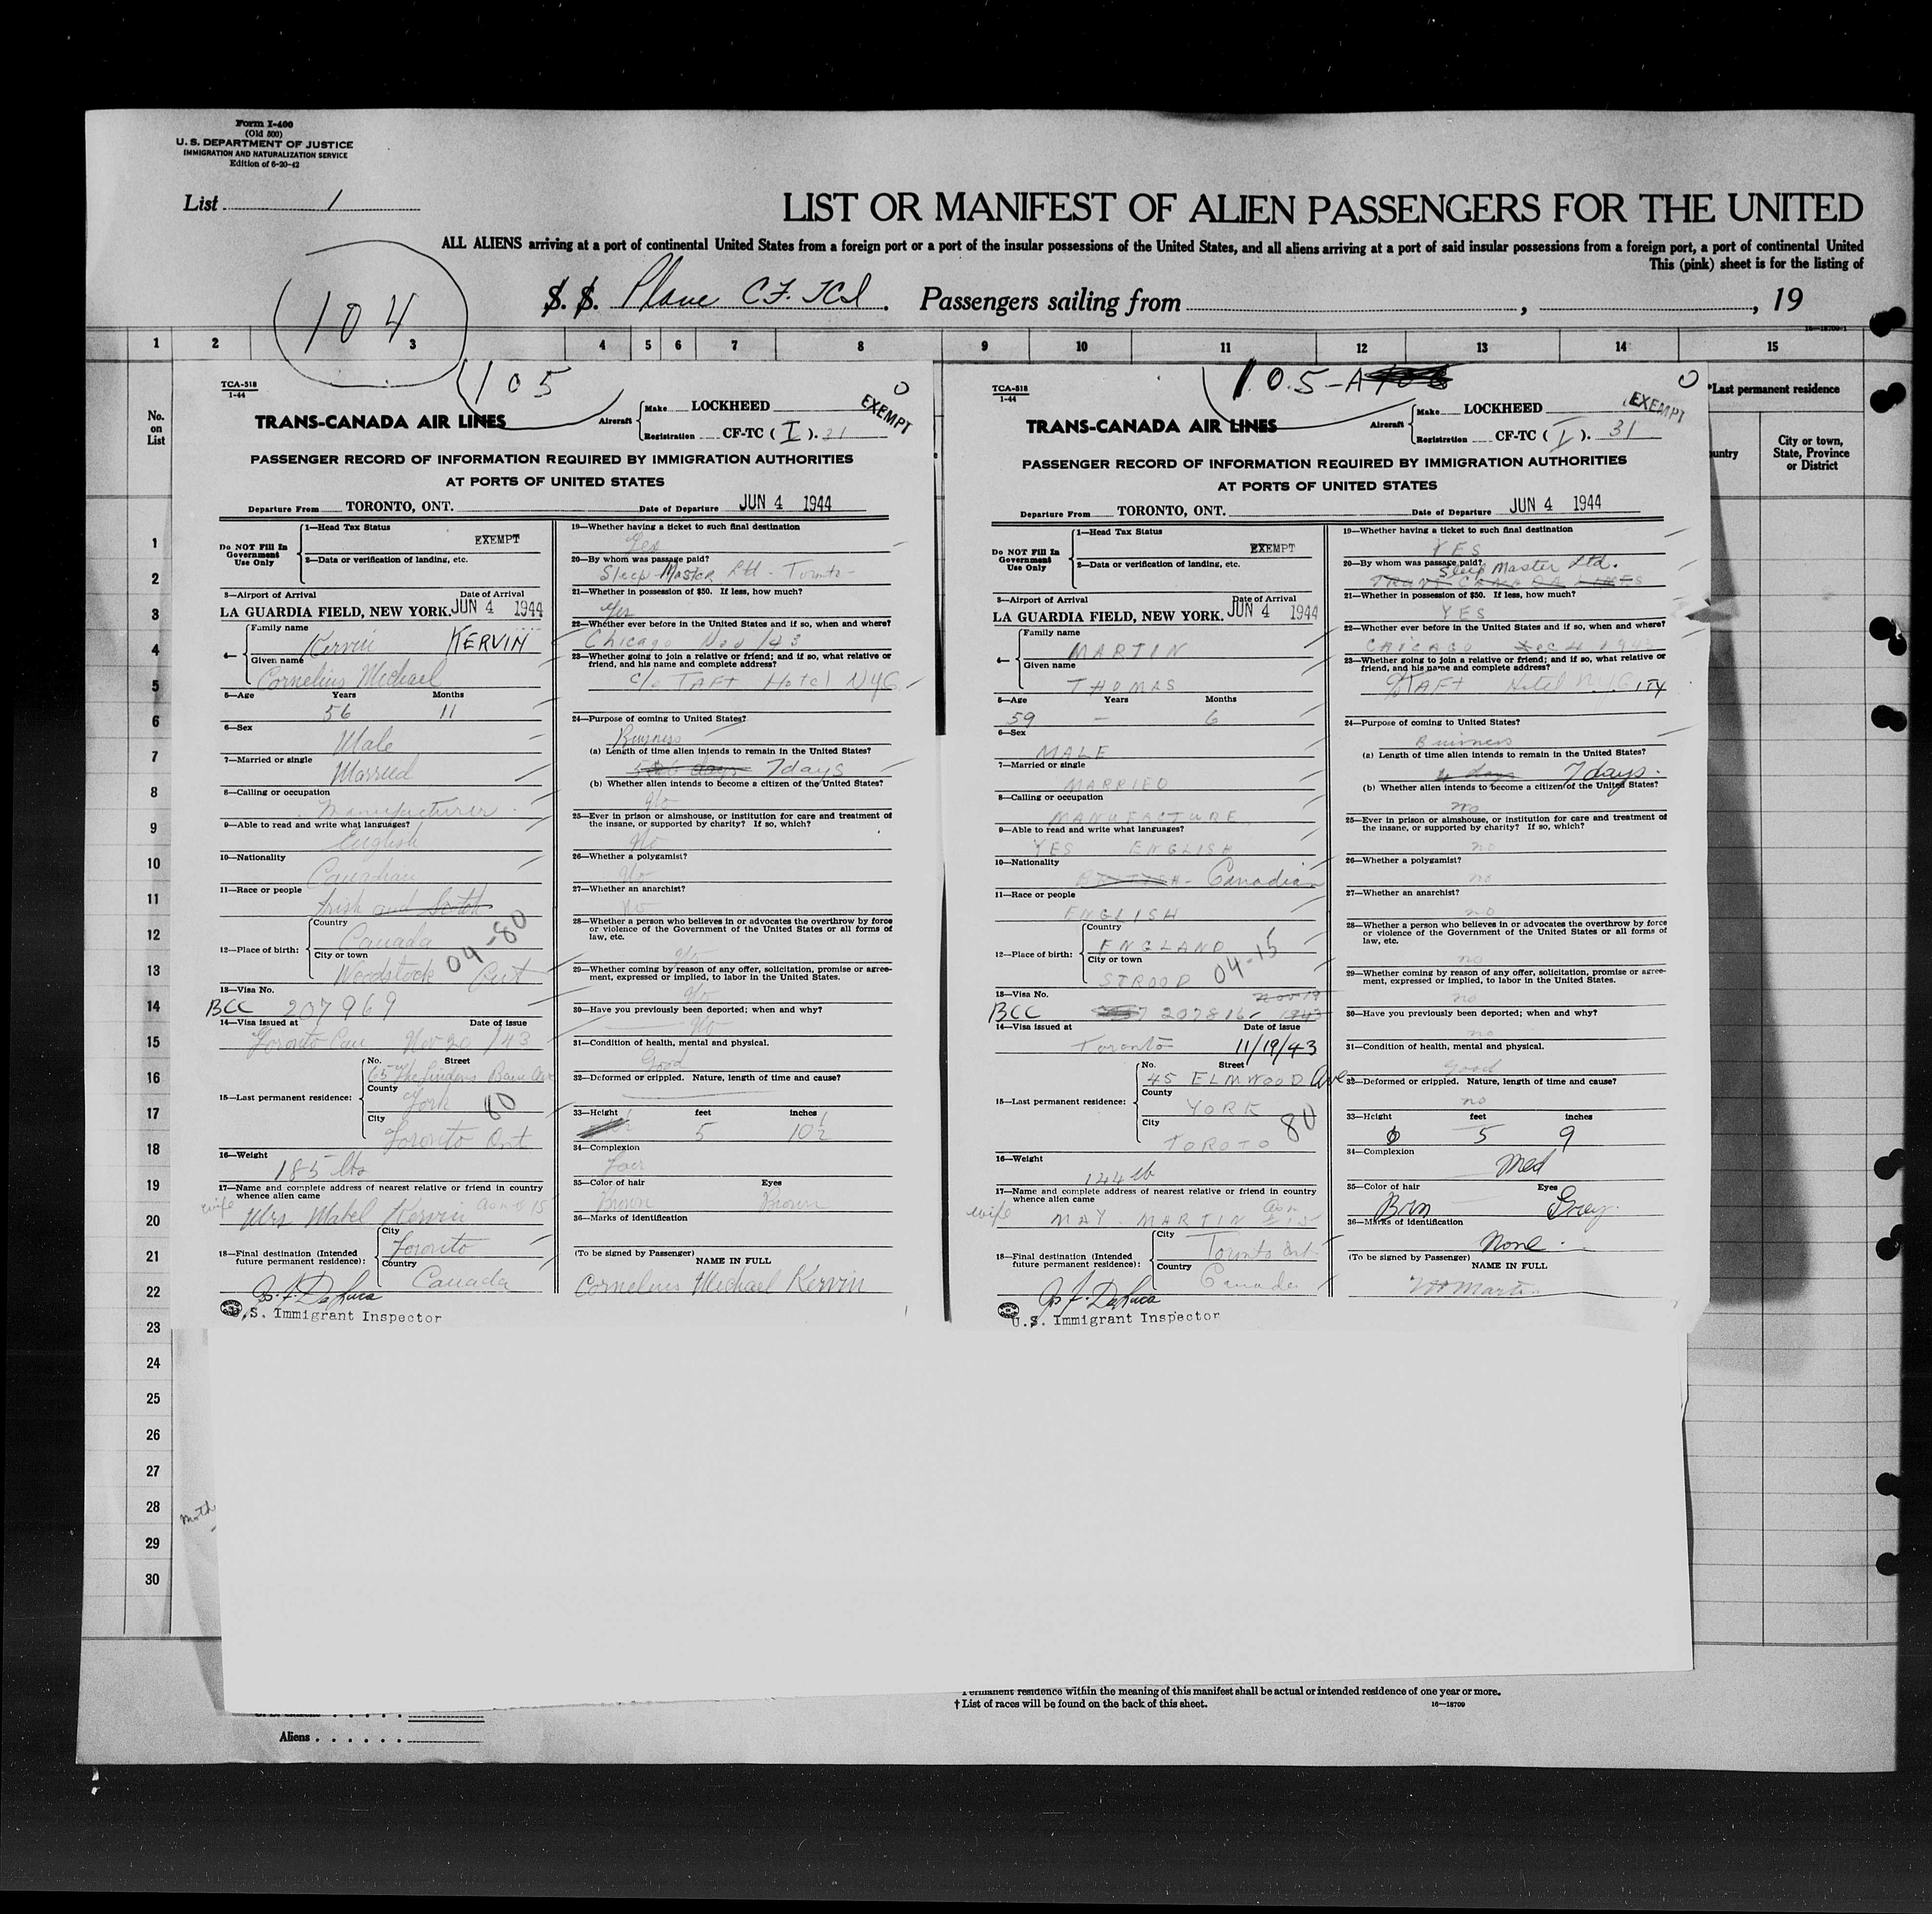 Form I-400
(Old 500)
U. S. DEPARTMENT OF JUSTICE
IMMIGRATION AND NATURALIZATION SERVICE
Edition of 6-20-42
List 1
LIST OR MANIFEST OF ALIEN PASSENGERS FOR THE UNITED
ALL ALIENS arriving at a port of continental United States from a foreign port or a port of the insular possessions of the United States, and all aliens arriving at a port of said insular possessions from a foreign port, a port of continental United
This (pink) sheet is for the listing of
104
S. S. Plane CF. TCI. Passengers sailing from , , 19
16—18709-1
1 2 3 4 5 6 7 8 9 10 11 12 13 14 15
No. on List
*Last permanent residence
untry
City or town, State, Province or District
105
TCA-518
1-44
EXEMPT
TRANS-CANADA AIR LINES
Aircraft
Make LOCKHEED
Registration CF-TC ( I ). 31
PASSENGER RECORD OF INFORMATION REQUIRED BY IMMIGRATION AUTHORITIES
AT PORTS OF UNITED STATES
Departure From TORONTO, ONT. Date of Departure JUN 4 1944
Do NOT Fill In Government Use Only
1—Head Tax Status
EXEMPT
2—Data or verification of landing, etc.
3—Airport of Arrival Date of Arrival
LA GUARDIA FIELD, NEW YORK. JUN 4 1944
4—
Family name
Kervin KERVIN
Given name
Cornelius Michael
5—Age Years Months
56 11
6—Sex
Male
7—Married or single
Married
8—Calling or occupation
Manufacturer
9—Able to read and write what languages?
English
10—Nationality
Canadian
11—Race or people
Irish and Scotch
12—Place of birth:
Country
Canada
City or town
Woodstock Ont
04-80
13—Visa No.
BCC 207969
14—Visa issued at Date of issue
Toronto Can Nov 20/43
15—Last permanent residence:
No. Street
Bain Ave
County
York 80
City
Toronto Ont
16—Weight
185 lbs
17—Name and complete address of nearest relative or friend in country whence alien came
wife Mrs Mabel Kervin as in # 15
18—Final destination (Intended future permanent residence):
City
Toronto
Country
Canada
U.S. Immigrant Inspector
19—Whether having a ticket to such final destination
Yes
20—By whom was passage paid?
Sleep-Master Ltd. Toronto
21—Whether in possession of $50. If less, how much?
Yes
22—Whether ever before in the United States and if so, when and where?
Chicago Nov /43
23—Whether going to join a relative or friend; and if so, what relative or friend, and his name and complete address?
c/o TAFT Hotel NYC
24—Purpose of coming to United States?
Business
(a) Length of time alien intends to remain in the United States?
7 days
(b) Whether alien intends to become a citizen of the United States?
No
25—Ever in prison or almshouse, or institution for care and treatment of the insane, or supported by charity? If so, which?
No
26—Whether a polygamist?
No
27—Whether an anarchist?
No
28—Whether a person who believes in or advocates the overthrow by force or violence of the Government of the United States or all forms of law, etc.
No
29—Whether coming by reason of any offer, solicitation, promise or agreement, expressed or implied, to labor in the United States.
No
30—Have you previously been deported; when and why?
No
31—Condition of health, mental and physical.
Good
32—Deformed or crippled. Nature, length of time and cause?
33—Height feet inches
5 10½
34—Complexion
Fair
35—Color of hair Eyes
Brown Brown
36—Marks of identification
(To be signed by Passenger) NAME IN FULL
Cornelius Michael Kervin
105-A
TCA-518
1-44
EXEMPT
TRANS-CANADA AIR LINES
Aircraft
Make LOCKHEED
Registration CF-TC ( I ). 31
PASSENGER RECORD OF INFORMATION REQUIRED BY IMMIGRATION AUTHORITIES
AT PORTS OF UNITED STATES
Departure From TORONTO, ONT. Date of Departure JUN 4 1944
Do NOT Fill In Government Use Only
1—Head Tax Status
EXEMPT
2—Data or verification of landing, etc.
3—Airport of Arrival Date of Arrival
LA GUARDIA FIELD, NEW YORK. JUN 4 1944
4—
Family name
MARTIN
Given name
THOMAS
5—Age Years Months
59 — 6
6—Sex
MALE
7—Married or single
MARRIED
8—Calling or occupation
MANUFACTURE
9—Able to read and write what languages?
YES ENGLISH
10—Nationality
BRITISH - Canadian
11—Race or people
ENGLISH
12—Place of birth:
Country
ENGLAND
City or town
STROOD
04-15
13—Visa No. Nov 19 1943
BCC 207816
14—Visa issued at Date of issue
Toronto 11/19/43
15—Last permanent residence:
No. Street
45 ELMWOOD Ave
County
YORK
City
TOROTO 80
16—Weight
144 lb
17—Name and complete address of nearest relative or friend in country whence alien came
wife MAY MARTIN as in # 15
18—Final destination (Intended future permanent residence):
City
Toronto Ont
Country
Canada
U.S. Immigrant Inspector
19—Whether having a ticket to such final destination
YES
20—By whom was passage paid?
Sleep Master Ltd.
TRANS CANADA LINES
21—Whether in possession of $50. If less, how much?
YES
22—Whether ever before in the United States and if so, when and where?
CHICAGO
23—Whether going to join a relative or friend; and if so, what relative or friend, and his name and complete address?
TAFT Hotel NYCITY
24—Purpose of coming to United States?
Business
(a) Length of time alien intends to remain in the United States?
4 days 7 days.
(b) Whether alien intends to become a citizen of the United States?
no
25—Ever in prison or almshouse, or institution for care and treatment of the insane, or supported by charity? If so, which?
no
26—Whether a polygamist?
no
27—Whether an anarchist?
no
28—Whether a person who believes in or advocates the overthrow by force or violence of the Government of the United States or all forms of law, etc.
no
29—Whether coming by reason of any offer, solicitation, promise or agreement, expressed or implied, to labor in the United States.
no
30—Have you previously been deported; when and why?
no
31—Condition of health, mental and physical.
Good
32—Deformed or crippled. Nature, length of time and cause?
no
33—Height feet inches
5 9
34—Complexion
Med
35—Color of hair Eyes
Brn Grey
36—Marks of identification
None
(To be signed by Passenger) NAME IN FULL
Martin
1
2
3
4
5
6
7
8
9
10
11
12
13
14
15
16
17
18
19
20
21
22
23
24
25
26
27
28
29
30
Permanent residence within the meaning of this manifest shall be actual or intended residence of one year or more.
† List of races will be found on the back of this sheet. 16—18709
Aliens